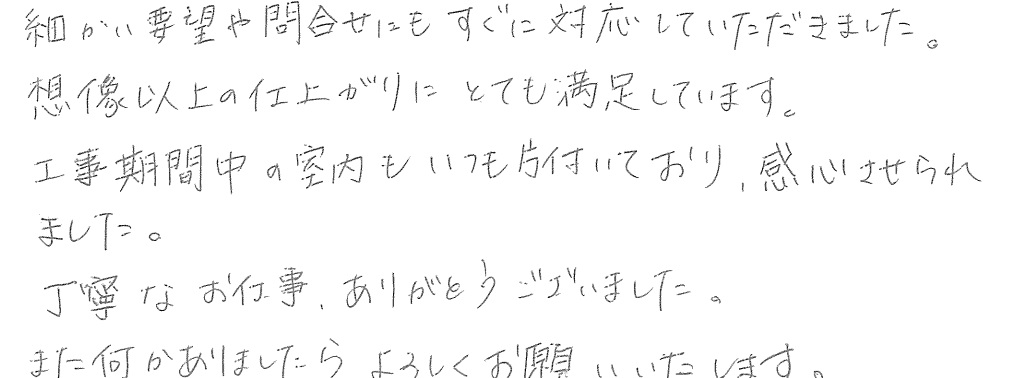 細かい要望や問合せにもすぐに対応していただきました。
想像以上の仕上がりにとても満足しています。
工事期間中の室内もいつも片付いており、感心させられ
ました。
丁寧なお仕事、ありがとうございました。
また何かありましたらよろしくお願いいたします。